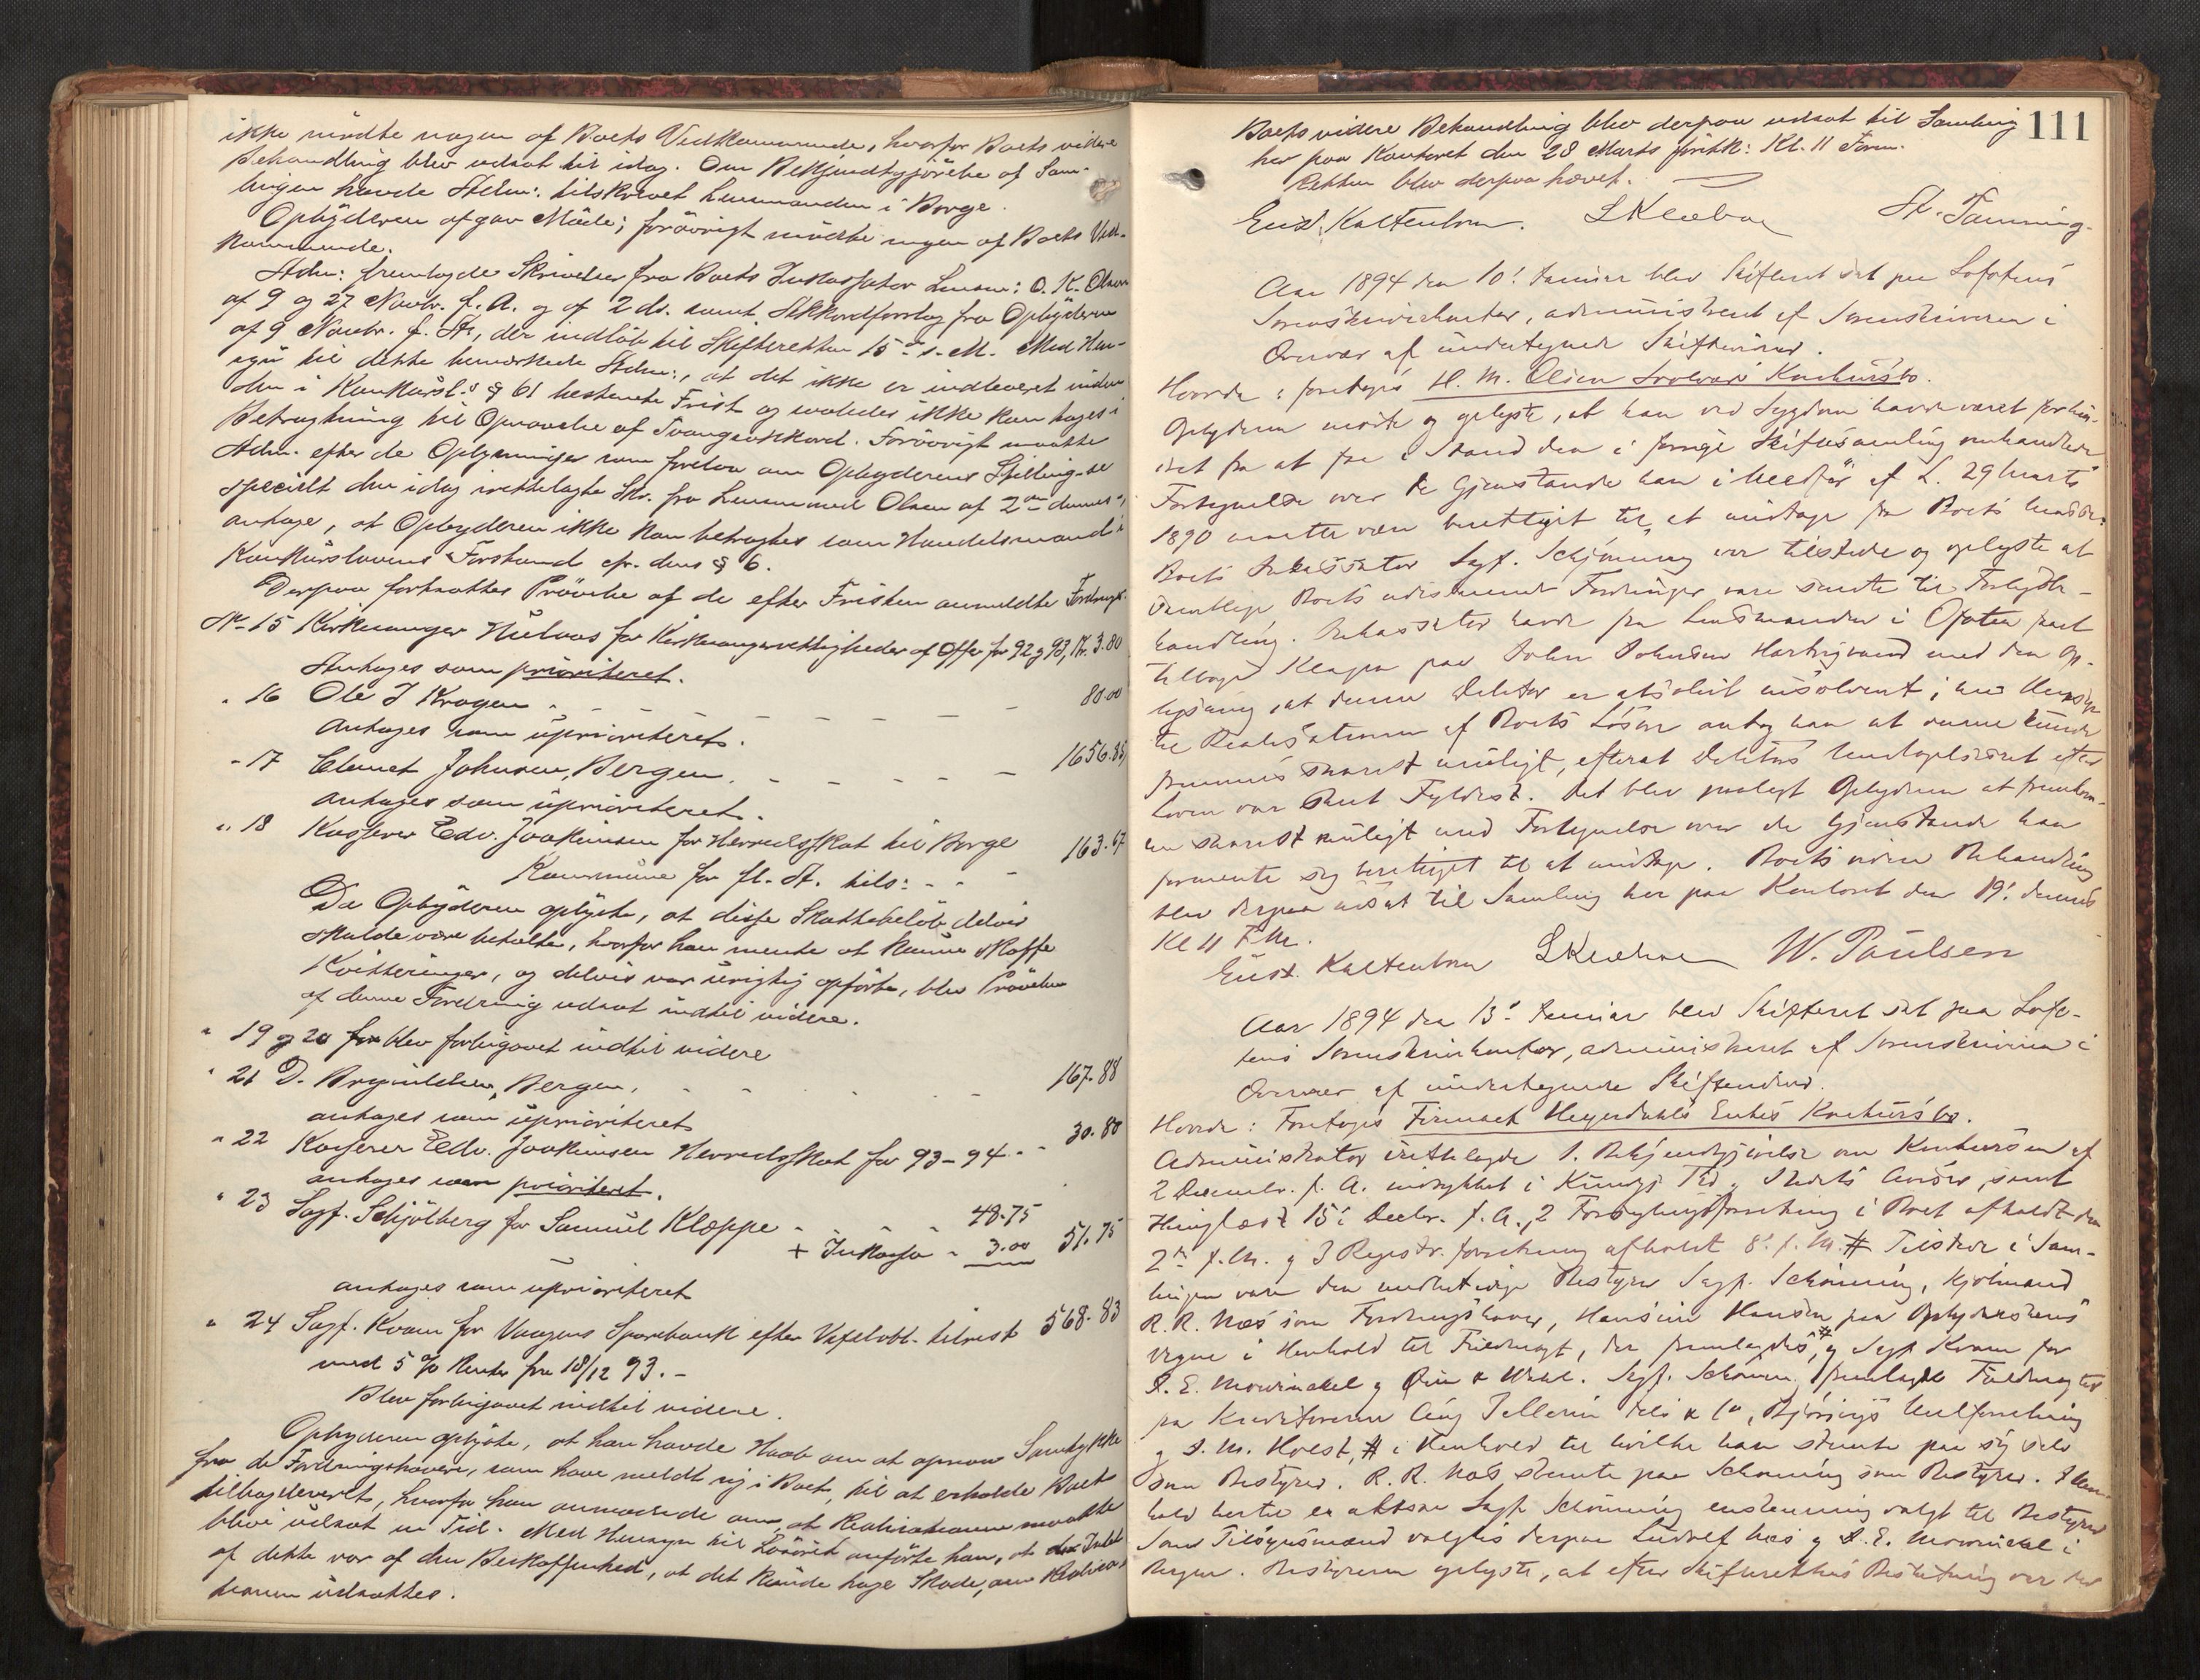 ikke mödte nogen af Boets Vedkommende, hvorfor Boets videre
Behandling blev udsat til idag. Om Bekjendtgjörelse af Sam-
lingen havde Adm: tilskrevet Lensmanden i Borge.
Opbyderen afgav Möde; forövrigt mödte ingen af Boets Ved-
kommende.
Adm: fremlagde Skrivelser fra Boets Inkassator Lensm: O. K. Olsen
af 9 og 27 Novbr. f. A. og af 2 ds. samt Akkordforslag fra Opbyderen
af 9 Novbr. f. A., der indlöb til Skifteretten 15de s. M. Med Hen-
syn til dette bemærkede Adm:, at det ikke er indleveret inden
den i Konkursl.s § 61 bestemte Frist og saaledes ikke kan tages i
Betragtning til Opnaaelse af Tvangsakkord. Forövrigt maatte
Adm. efter de Oplysninger som forelaa om Opbyderens Stilling – se
specielt den idag irettelagte Skr. fra Lensmand Olsen af 2den dennes –
antage, at Opbyderen ikke kan betragtes som Handelsmand i
Konkurslovens Forstand cfr. dens § 6.
Derpaa fortsattes Prövelse af de efter Fristen anmeldte Fordringer.
No 15 Kirkesanger Hulaas for Kirkesangerrettigheder af Offer for 92 g 93, Kr. 3.80
Antages som prioriteret.
" 16 Ole J Kragen " – – – – – – 80.00
antages som uprioriteret.
" 17 Clemet Johnsen, Bergen. – – – – – 1656.85
antages som uprioriteret.
" 18 Kasserer Edv. Joakimsen for Herredsskat til Borge
Kommune for fl. A. tils: - - - 163.67
Da Opbyderen oplyste, at disse Skattebelöb delvis
skulde være betalte, hvorfor han mente at kunne skaffe
Kvitteringer, og delvis var urigtig opförte, blev Prövelse
af denne Fordring udsat indtil videre.
" 19 og 20 blev forbigaaet indtil videre
" 21 D. Brynildsen, Bergen, - - - - 167.88
antages som uprioriteret
" 22 Kasserer Edv. Joakimsen Herredsskat for 93–94 - - 30.80
antages som prioriteret.
" 23 Sagf. Schjölberg for Samuel Klæppe - - - - 48.75
+ Inkasso - 3.00 51.75
antages som uprioriteret
" 24 Sagf. Kvam for Vaagens Sparebank efter Vexelobl. tilrest 568.83
med 5 % Renter fra 18/12 93. –
Blev forbigaaet indtil videre.
Opbyderen oplyste, at han havde Haab om at opnaa Samtykke
fra de Fordringshavere, som have meldt sig i Boet, til at erholde Boet
tilbageleveret, hvorfor han anmodede om, at Realisationen maatte
blive udsat en Tid. Med Hensyn til Lösöret anförte han, at
af dette var af den Beskaffenhed, at det kunde tage Skade, om Realisa-
tionen udsattes.
111
Boets videre Behandling blev derpaa udsat til Samling
her paa Kontoret den 28 Marts förstk: Kl. 11 Form.
Retten blev derpaa hævet.
Eust. Kaltenborn. L Kleeboe A. Tanning.
Aar 1894 den 10. Januar blev Skifteret sat paa Lofotens
Sorenskriverkontor, administreret af Sorenskriveren i
Overvær af undertegnede Skiftevidner.
Hvorda: foretoges H. M. Olsen Svolvær Konkursbo.
Opbyderen mødte og oplyste, at han ved Sygdom havde været forhin-
dret fra at faa i Stand den i forrige Skiftesamling omhandlede
Fortegnelse over de Gjenstande han i Medfør af L. 29 Marts
1890 maatte være berettiget til at undtage fra Boets Masse.
Boets Inkassator Sagf. Schjönning var tilstede og oplyste at
samtlige Boets udestaaende Fordringer vare sendte til Forligsbe-
handling. Inkassator havde fra Lensmanden i Ofoten faaet
tilbage Klagen paa John Johnsen Hartvigvand med den Op-
lysning, at denne Debitor er absolut insolvent; med Hensyn
til Realisationen af Boets Lösøre antog han at denne kunde
fremmes snarest muligt, efterat Debitors Undtagelsesret efter
Loven var sket Fyldest. Det blev paalagt Opbyderen at fremkom-
me snarest muligt med Fortegnelse over de Gjenstande han
formente sig berettiget til at undtage. Boets videre Behandling
blev derpaa udsat til Samling her paa Kontoret den 19. dennes
Kl 11 F.M.
Eust. Kaltenborn L Kleeboe W. Paulsen
Aar 1894 den 13. Januar blev Skifteret sat paa Lofo-
tens Sorenskriverkontor, administreret af Sorenskriveren i
Overvær af undertegnede Skiftevidner.
Hvorda: Foretoges Firmaet Heyerdahls Enkes Konkursbo.
Administrator irettelagde 1. Bekjendtgjørelse om Konkursen af
2 Decembr. f. A. indrykket i Kundgj. Tid. g Stedets Aviser, samt
thinglæst 15. Decbr. f. A., 2 Forseglingsforretning i Boet afholdt den
2den f. M. g 3 Registr. forretning afholdt 8. f. M. # Tilstede i Sam-
lingen vare den midlertidige Bestyrer Sagf. Schønning, Kjøbmand
R. R. Næs som Fordringshaver, Hansine Hansen paa Opbyderskens
Vegne i Henhold til Fuldmagt, der fremlagdes,# g Sagf. Kvam for
J. E. Mowinckel g . Sagf. Schønning fremlagde Fuldmagter
fra Kreditorerne Aug. Pellerin Fils & Co, Uldforretning
g J. M. Holst,# i Henhold til hvilke han stemte paa sig selv
som Bestyrer. R. R. Næs stemte paa Schønning som Bestyrer. I Hen-
hold hertil er altsaa Sagf. Schønning enstemmig valgt til Bestyrer
Som Tilsynsmænd valgtes derpaa Ludolf Næs g J. E. Mowinckel i
Bergen. Bestyreren oplyste, at efter Skifterettens Beslutning var der